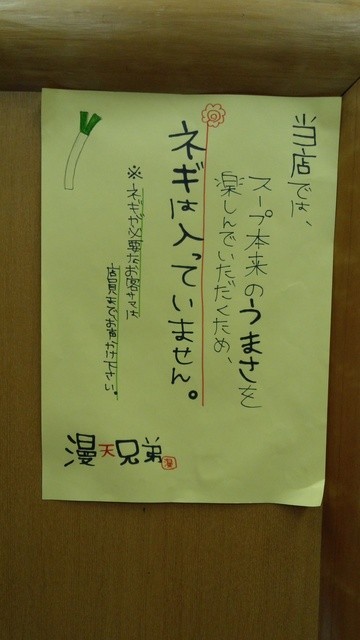 当店では、
スープ本来のうまさを
楽しんでいただくため、
ネギは入っていません。
※ネギが必要なお客サマは
店員までお声がけ下さい。
漫天兄弟